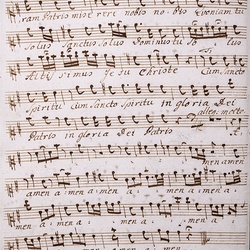 ram Patris mise rere nobis no bis Quoniam tu
solus Sanctus solus Dominus tu So lus
Altissimus Je su Christe Cum Sancto
Spiritu cum Sancto Spiritu in gloria Dei
allegro molto
Patris in gloria Dei Patris A
men amen
amen a men a men amen a
amen a men a men a
men a men amen